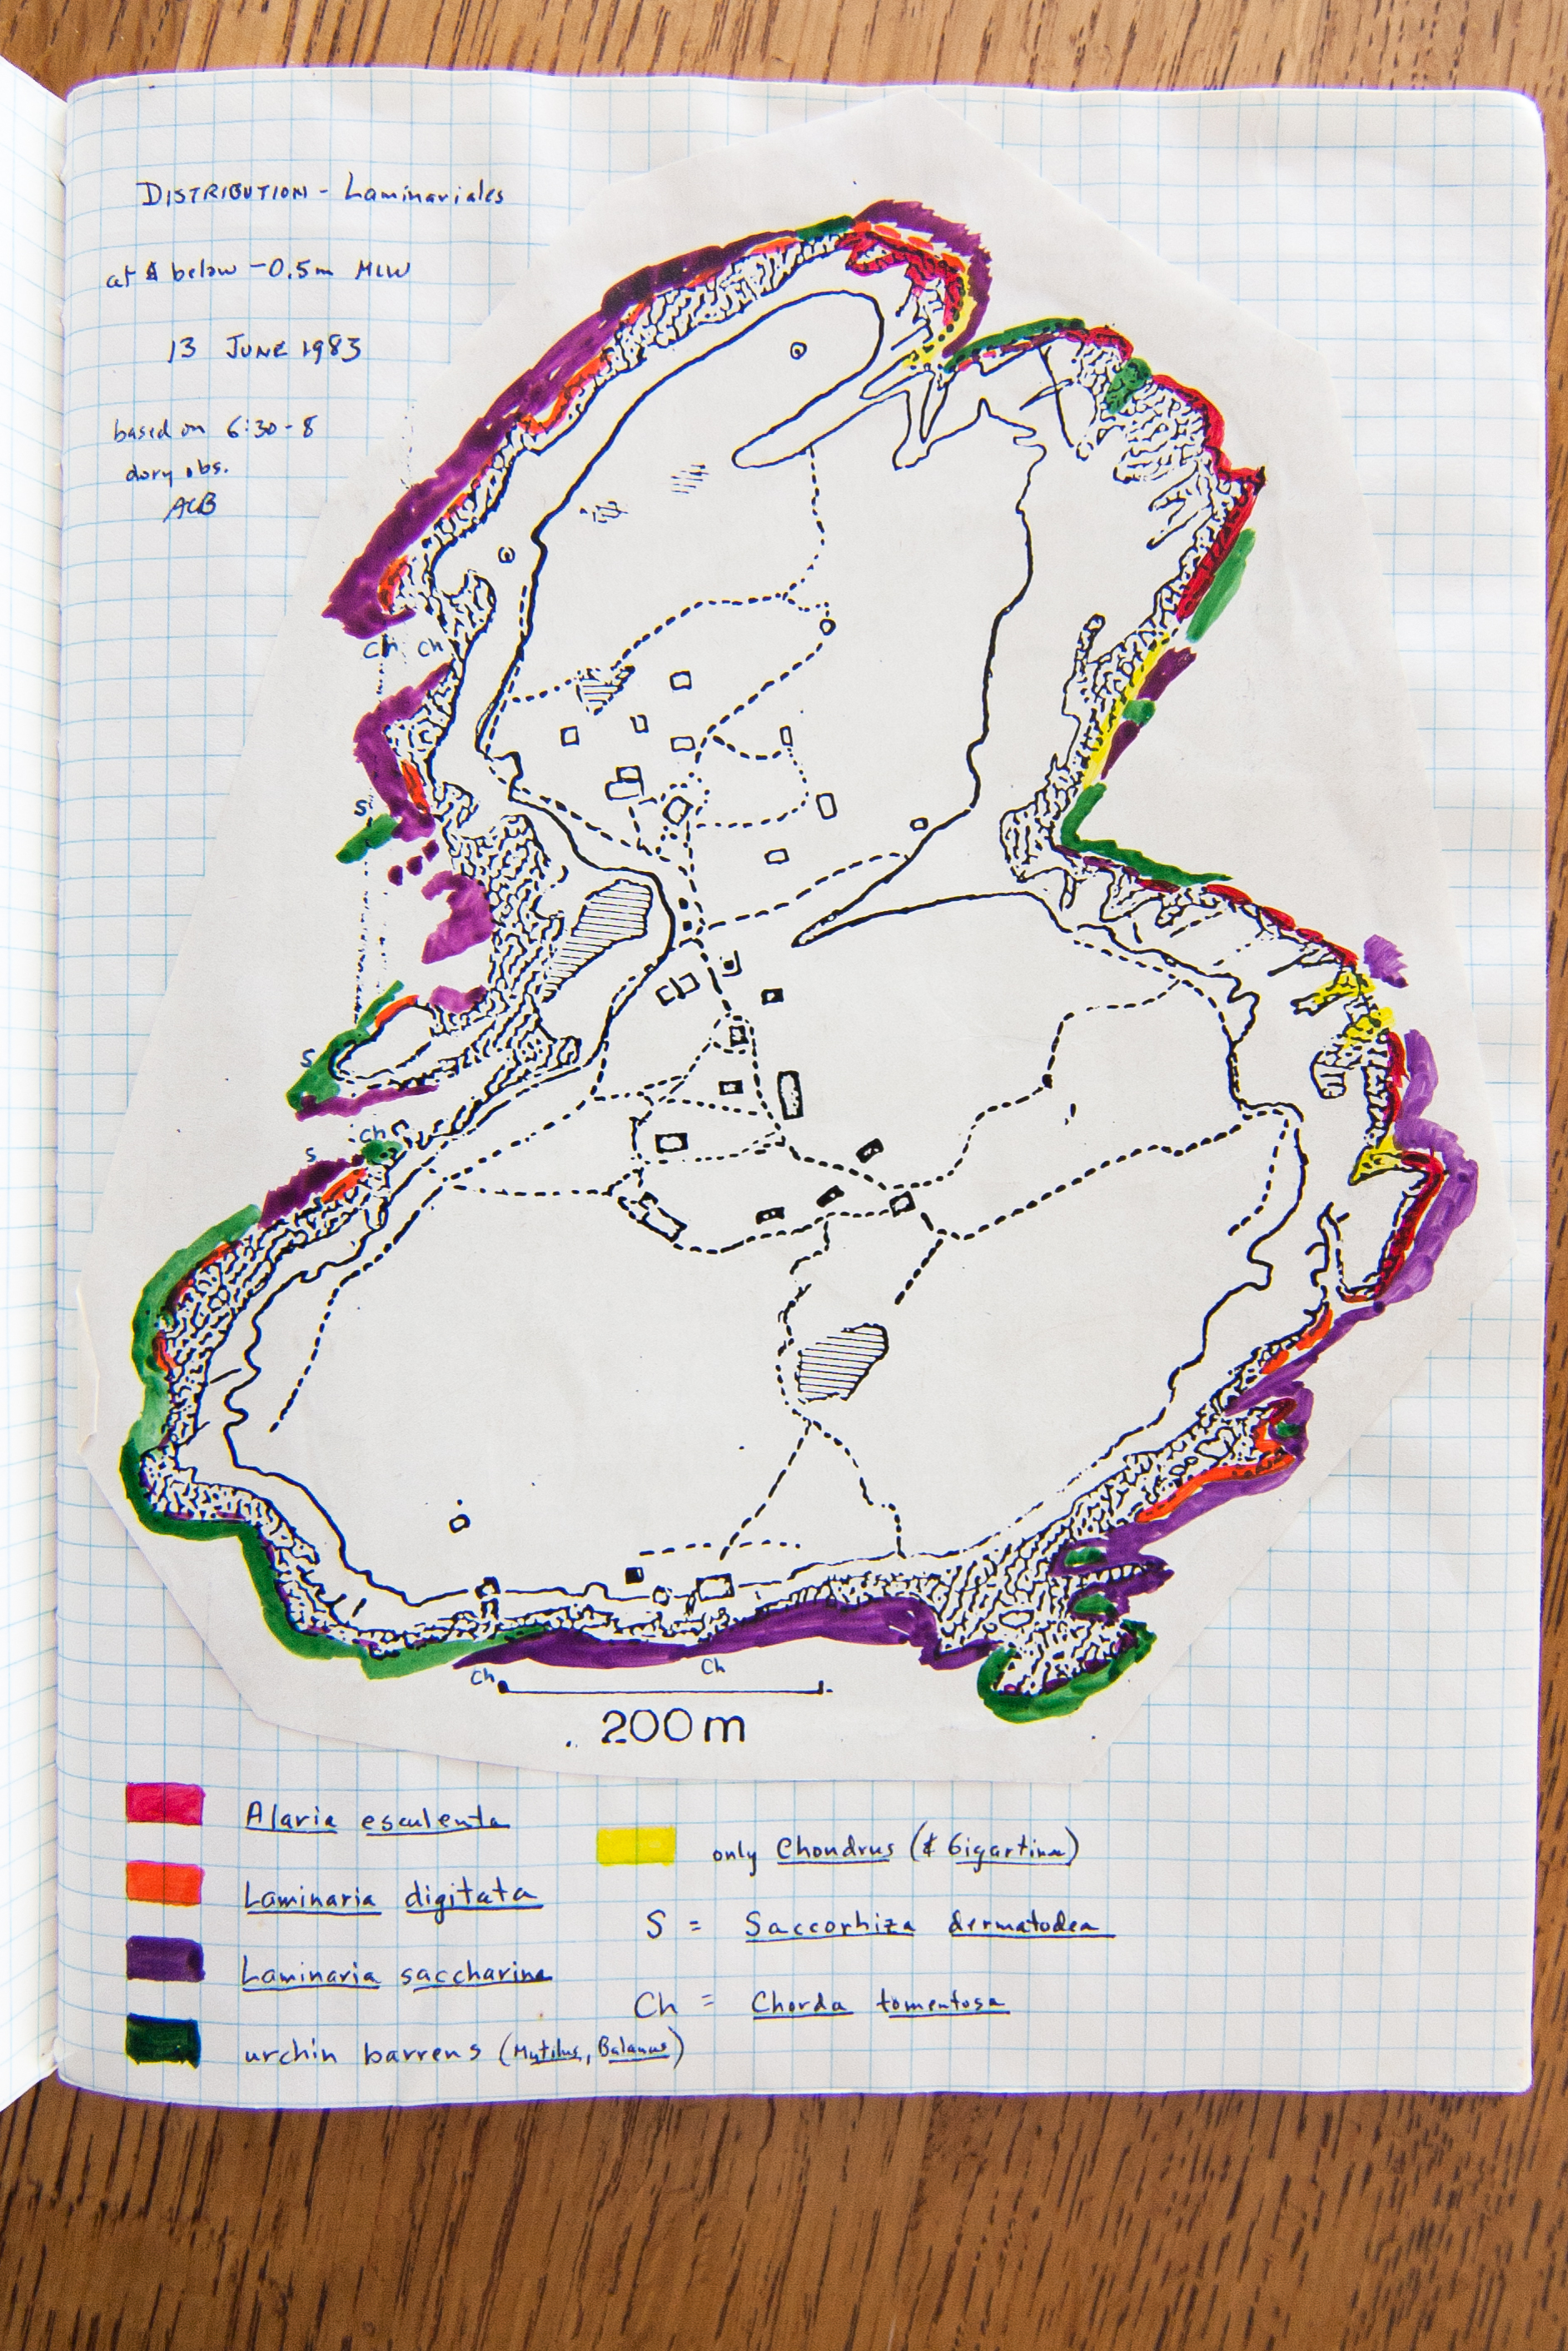 DISTRIBUTION - Laminariales
at & below -0.5m MLW
13 JUNE 1983
based on 6:30-8
dory obs.
ACB
Ch Ch
S
S
Ch
S
Ch
Ch
200m
Alaria esculenta
Laminaria digitata
Laminaria saccharina
urchin barrens (Mytilus, Balanus)
only Chondrus (& Gigartina)
S = Saccorhiza dermatodea
Ch = Chorda tomentosa